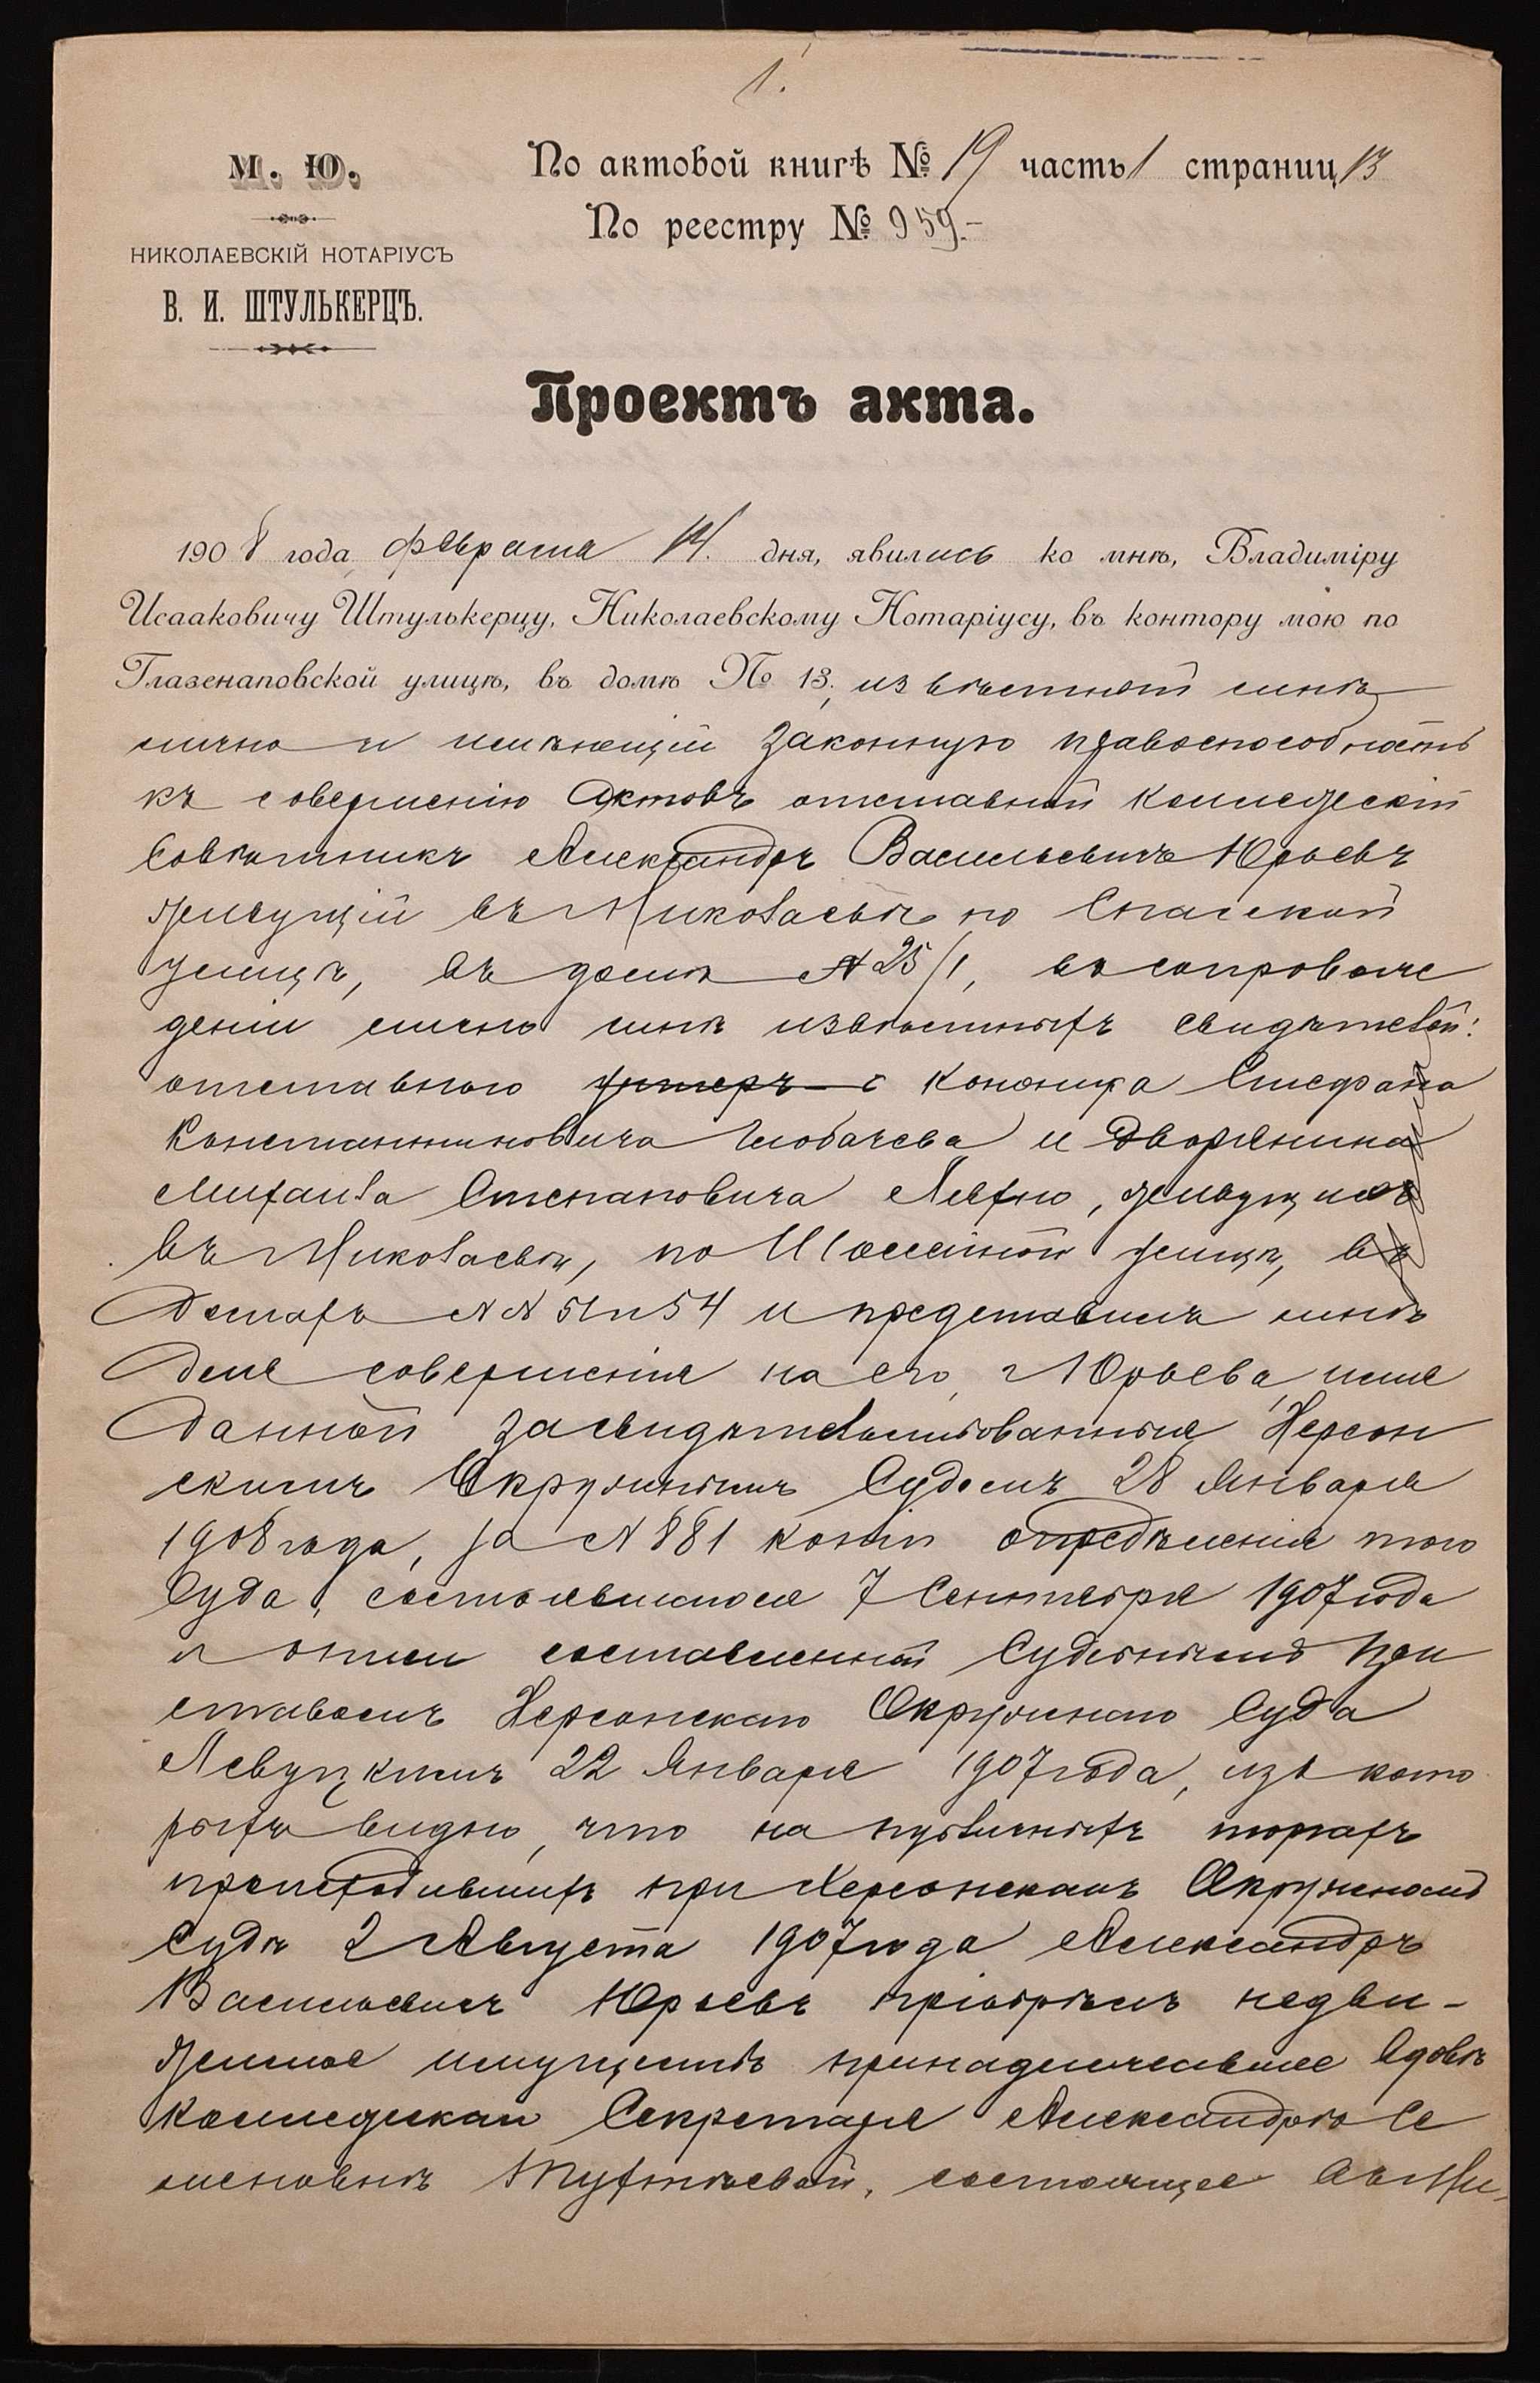 1.
М. Ю.
По актовой книгѣ № 19 часть 1 страниц 13
НИКОЛАЕВСКІЙ НОТАРІУСЪ
По реестру № 959.-
В. И. ШТУЛЬКЕРЦЪ.
Проектъ акта.
1908 года февраля 14. дня, явились ко мнѣ, Владиміру
Исааковичу Штулькерцу, Николаевскому Нотаріусу, въ контору мою по
Глазенаповской улицѣ, въ домѣ № 13, извѣстный мнѣ
лично и имѣющій законную правоспособность
къ совершенію актовъ отставной Коллежскій
Совѣтникъ Александръ Васильевичъ Юрьевъ
живущій въ Николаевѣ по Спасской
улицѣ, въ домѣ № 25/1, въ сопровож
деніи лично мнѣ извѣстныхъ свидѣтелей:
отставного унтеръ-о Кононира
Константиновича и Дворянина
Михаила Степановича Яхно, живущихъ
въ Николаевѣ, по улицѣ, въ
домахъ №№ и 54 и представилъ мнѣ
для совершенія на его, Юрьева, имя
Данной засвидѣтельствованныя Херсон
скимъ Окружнымъ Судомъ 28 Января
1908 года, за № 881 копіи опредѣленія того
Суда, состоявшагося 7 Сентября 1907 года
и описи составленной Судебнымъ При
ставомъ Херсонскаго Окружнаго Суда
Левуцкимъ 22 Января 1907 года, изъ кото
рыхъ видно, что на публичныхъ торгахъ
происходившихъ при Херсонскомъ Окружномъ
Судѣ 2 Августа 1907 года Александръ
Васильевичъ Юрьевъ пріобрѣлъ недви-
жимое имущество принадлежавшее вдовѣ
Коллежскаго Секретаря Александрѣ Се
меновнѣ состоящее въ Ни-